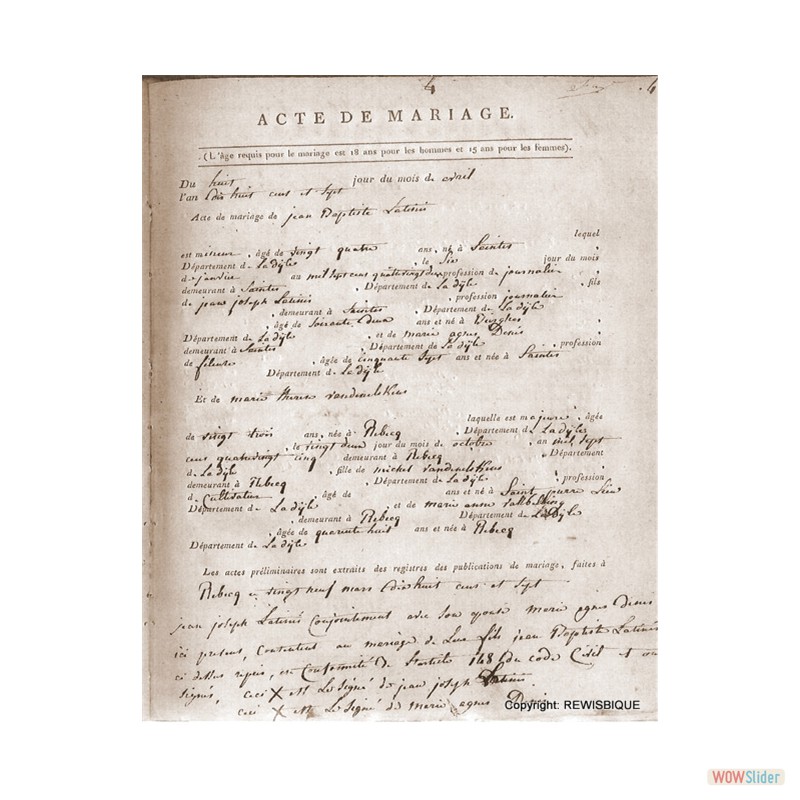 4
4
ACTE DE MARIAGE.
(L'âge requis pour le mariage est 18 ans pour les hommes et 15 ans pour les femmes).
Du huit jour du mois de avril
l'an dix huit cens et sept
Acte de mariage de jean Baptiste Latinis
lequel
est mineur, âgé de vingt quatre ans, né à Saintes
Département de La dÿle, le Six jour du mois
de janvier au mil sept cens quatrevingt deux profession de journalier
demeurant à Saintes, Département de La dÿle, fils
de jean joseph Latinis, profession journalier
, demeurant à Saintes, Département de La dÿle
, âgé de Soixante deux ans et né à
Département de La dÿle, et de marie agnes Denis
demeurant à Saintes, Département de La dÿle, profession
de fileuse, âgée de cinquante Sept ans et née à Saintes
Département de La dÿle
Et de marie therese
laquelle est majeure, âgée
de vingt trois ans, née à Rebecq, Département de La dÿle
, le vingt deux jour du mois de octobre, an mil sept
cens quatrevingt cinq demeurant à Rebecq, Département
de La dÿle, fille de michel
demeurant à Rebecq, Département de La dÿle, profession
de Cultivateur, âgé de ans et né à Saint
Département de La dÿle, et de marie anne
, demeurant à Rebecq Département de La Dÿle
, âgée de quarente huit ans et née à Rebecq
Département de La dÿle
Les actes préliminaires sont extraits des registres des publications de mariage, faites à
Rebecq le vingt neuf mars dix huit cens et sept
jean joseph Latinis Conjointement avec son epouse marie agnes Denis
ici present, Consentent au mariage de Leur fils jean Baptiste Latinis
ci dessus repris, en Conformité de L'article 148 du code Civil et ont
signés, ceci X est Le signé de jean joseph Latinis
ceci X est Le signé de marie agnes Denis
Copyright: REWISBIQUE
WOWSlider